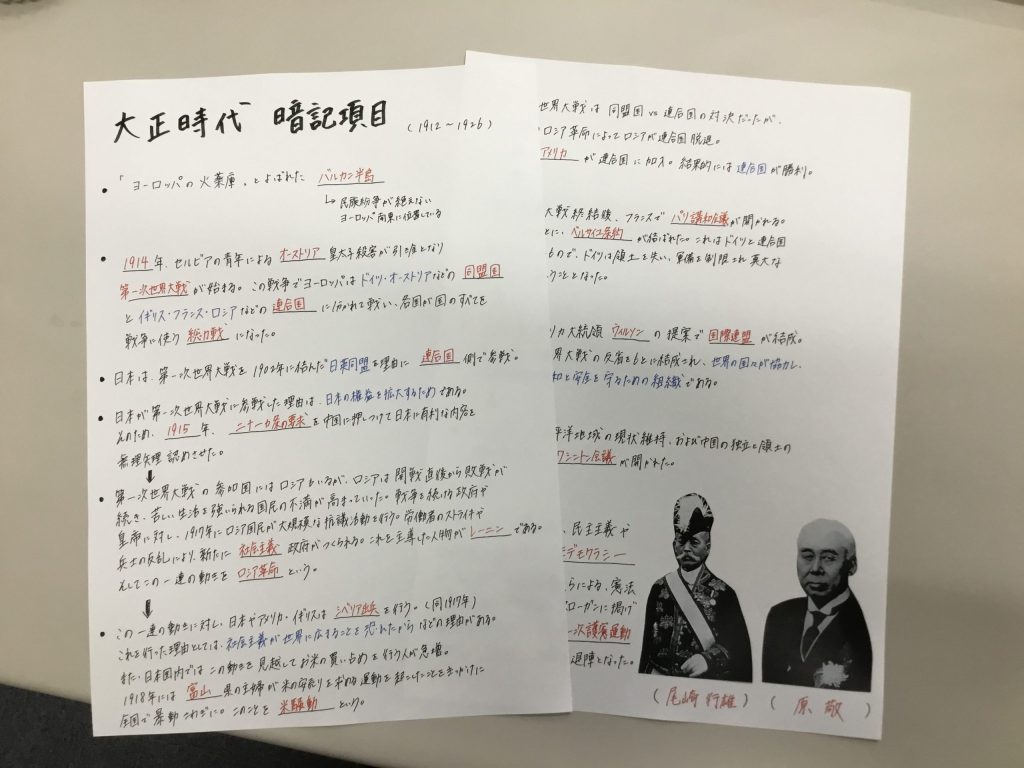 大正時代 暗記項目 (1912〜1926)
• 「ヨーロッパの火薬庫」とよばれた バルカン半島
↳ 民族紛争が絶えない
ヨーロッパ南東に位置している
• 1914年、セルビアの青年による オーストリア 皇太子殺害が引き金となり
第一次世界大戦 が始まる。この戦争でヨーロッパはドイツ・オーストリアなどの 同盟国
と イギリス・フランス・ロシアなどの 連合国 に分かれて戦い、各国が国のすべてを
戦争に使う 総力戦 になった。
• 日本は、第一次世界大戦を 1902年に結んだ日英同盟を理由に 連合国 側で参戦。
• 日本が第一次世界大戦に参戦した理由は、日本の権益を拡大するためである。
そのため、1915年、二十一カ条の要求 を中国に押しつけて日本に有利な内容を
無理矢理 認めさせた。
↓
• 第一次世界大戦の参加国にはロシアもいるが、ロシアは開戦直後から敗戦が
続き、苦しい生活を強いられる国民の不満が高まっていた。戦争を続ける政府や
皇帝に対し、1917年にロシア国民が大規模な抗議活動を行う。労働者のストライキや
兵士の反乱により、新たに 社会主義 政府がつくられる。これを主導した人物が レーニン である。
そしてこの一連の動きを ロシア革命 という。
↓
• この一連の動きに対し、日本やアメリカ・イギリスは シベリア出兵 を行う。(同1917年)
これを行った理由としては、社会主義が世界に広まることを恐れたからなどの理由がある。
また、日本国内ではこの動きを見越してお米の買い占めを行う人が急増。
1918年には 富山 県の主婦が米の安売りを求める運動を起こしたことをきっかけに
全国で暴動 このことを 米騒動 という。
世界大戦は 同盟国 vs 連合国の対決だったが、
ロシア革命によってロシアが連合国脱退。
アメリカ が連合国に加入。結果的には連合国が勝利。
大戦終結後、フランスで パリ講和会議 が開かれる。
とに、ベルサイユ条約 が結ばれた。これはドイツと連合国
もので、ドイツは領土を失い、軍備を制限され莫大な
うこととなった。
リカ大統領 ウィルソン の提案で 国際連盟 が結成。
界大戦の反省をもとに結成され、世界の国々が協力し、
和と安全を守るための組織である。
平洋地域の現状維持、および中国の独立と領土の
ワシントン会議 が開かれた。
、民主主義や
デモクラシー
らによる、憲法
ローガンに掲げ
一次護憲運動
退陣となった。
(尾崎行雄) (原 敬)